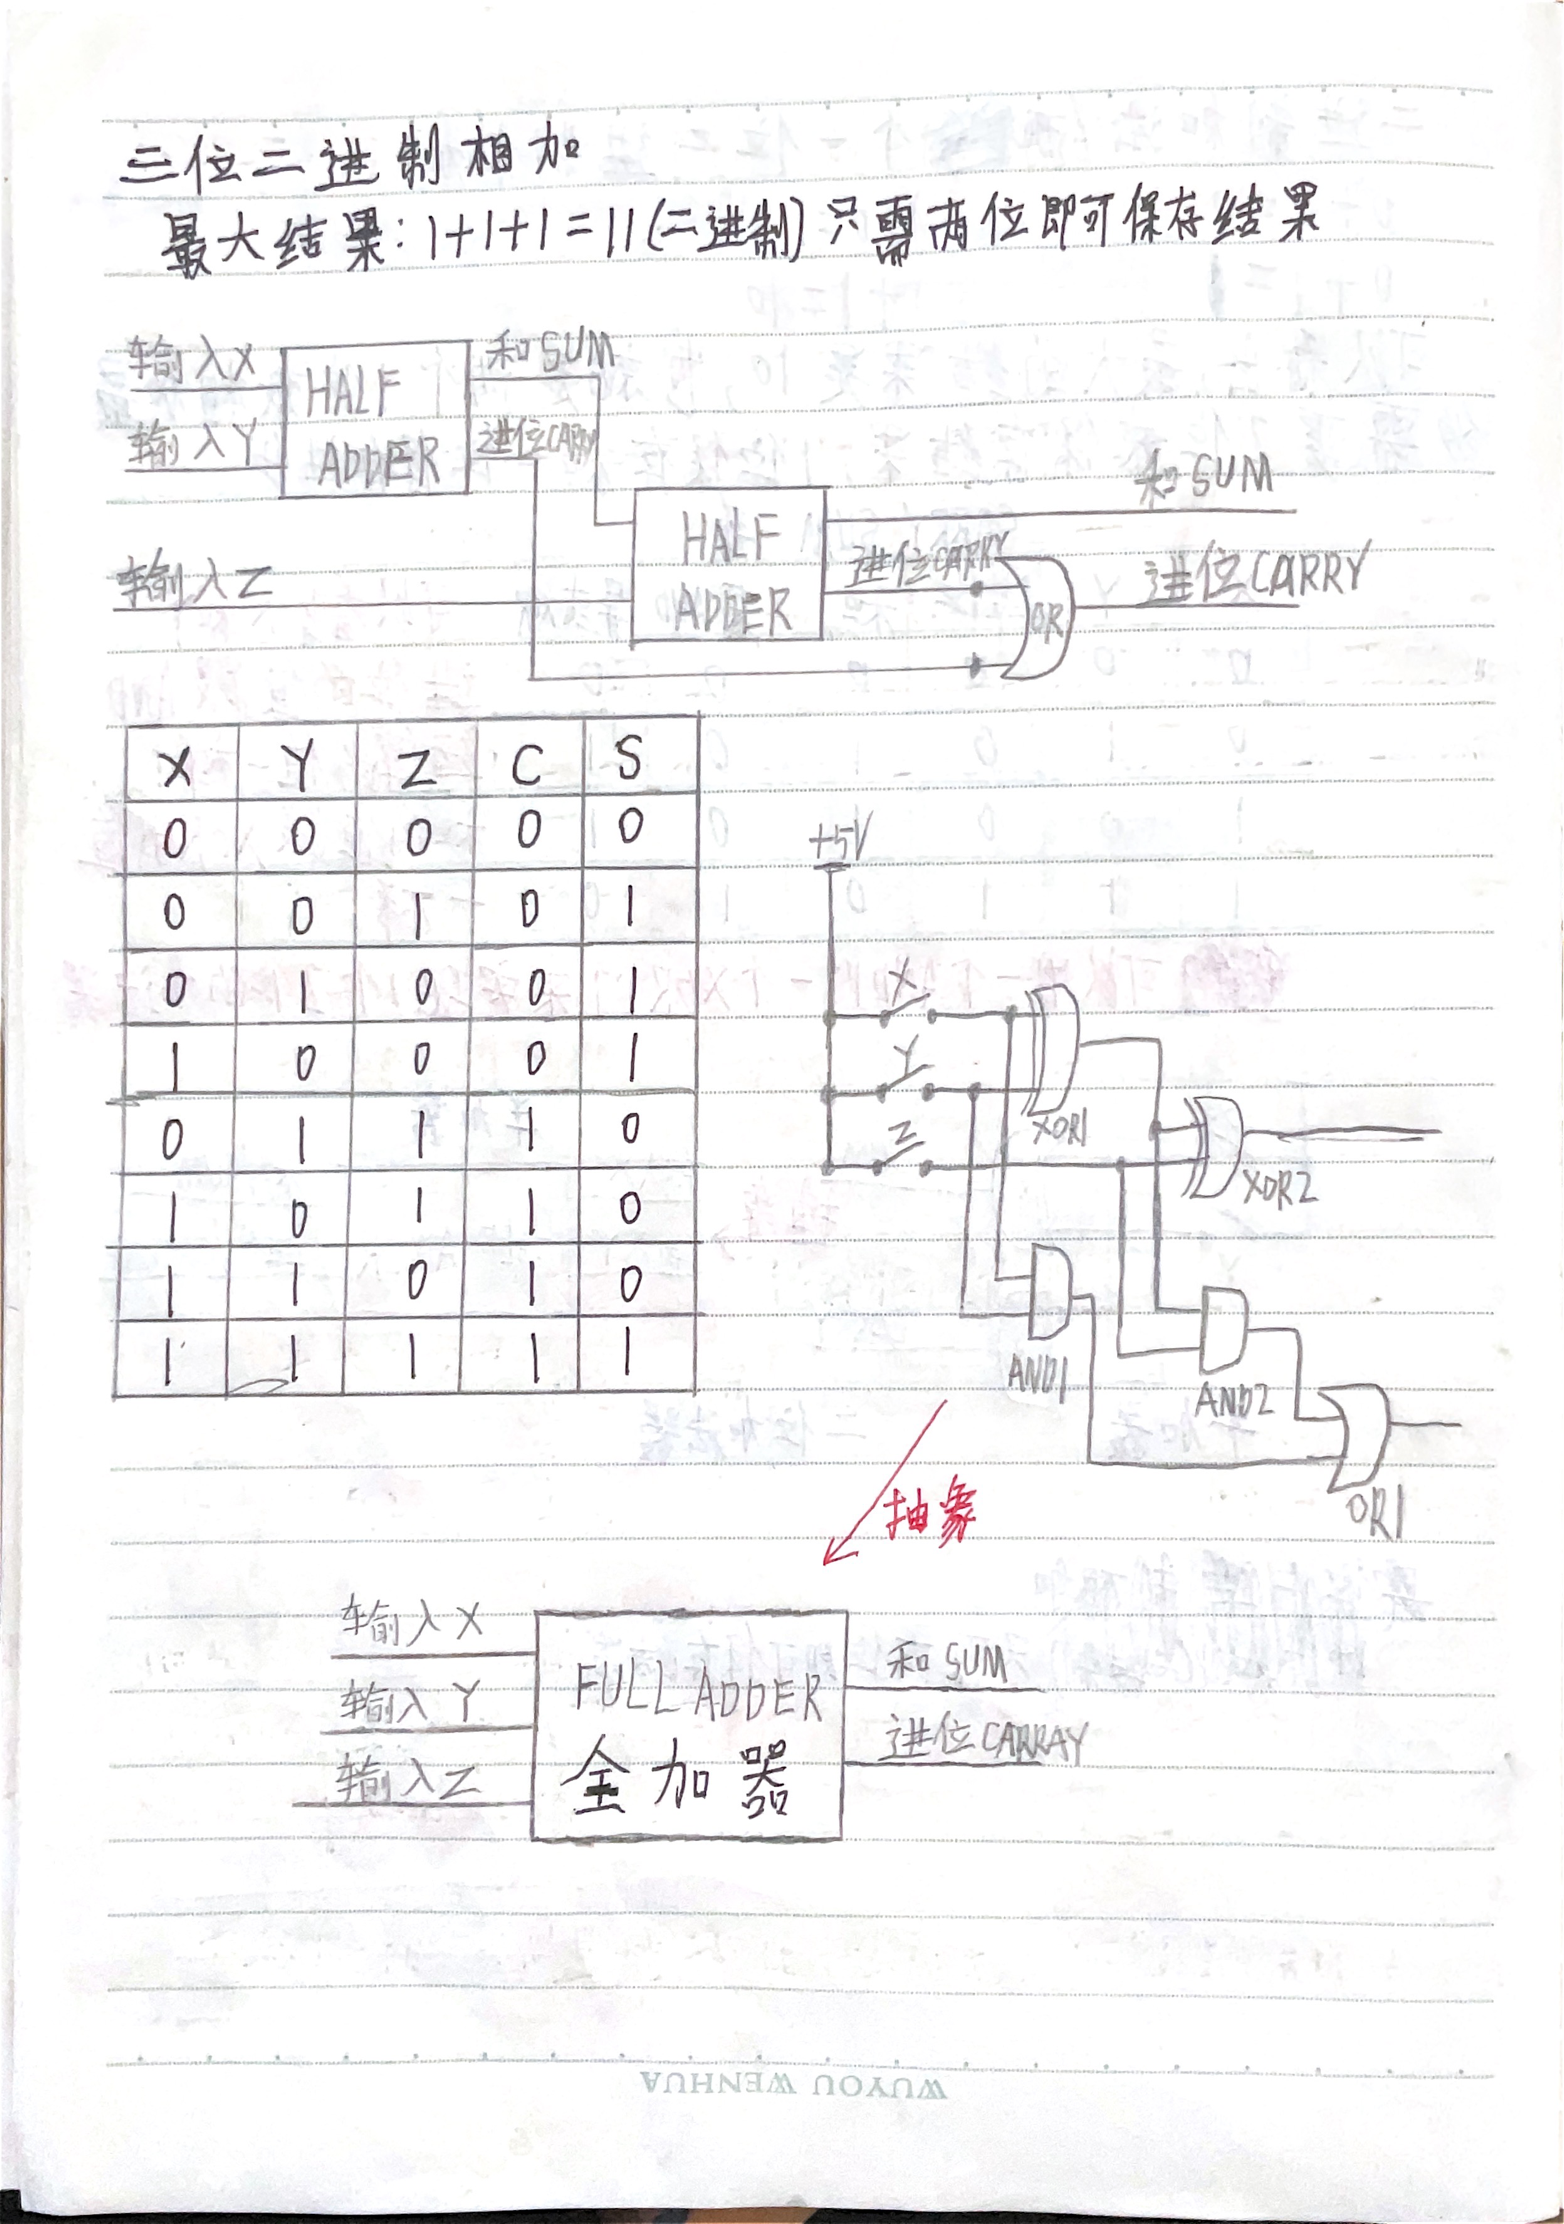 三位二进制相加
最大结果：1+1+1=11(二进制) 只需两位即可保存结果
输入X
输入Y
HALF
ADDER
和SUM
进位CARRY
输入Z
HALF
ADDER
进位CARRY
OR
和SUM
进位CARRY
X Y Z C S
0 0 0 0 0
0 0 1 0 1
0 1 0 0 1
1 0 0 0 1
0 1 1 1 0
1 0 1 1 0
1 1 0 1 0
1 1 1 1 1
+5V
X
Y
Z
XOR1
XOR2
AND1
AND2
OR1
抽象
输入X
输入Y
输入Z
FULL ADDER
全加器
和SUM
进位CARRAY
WUYOU WENHUA